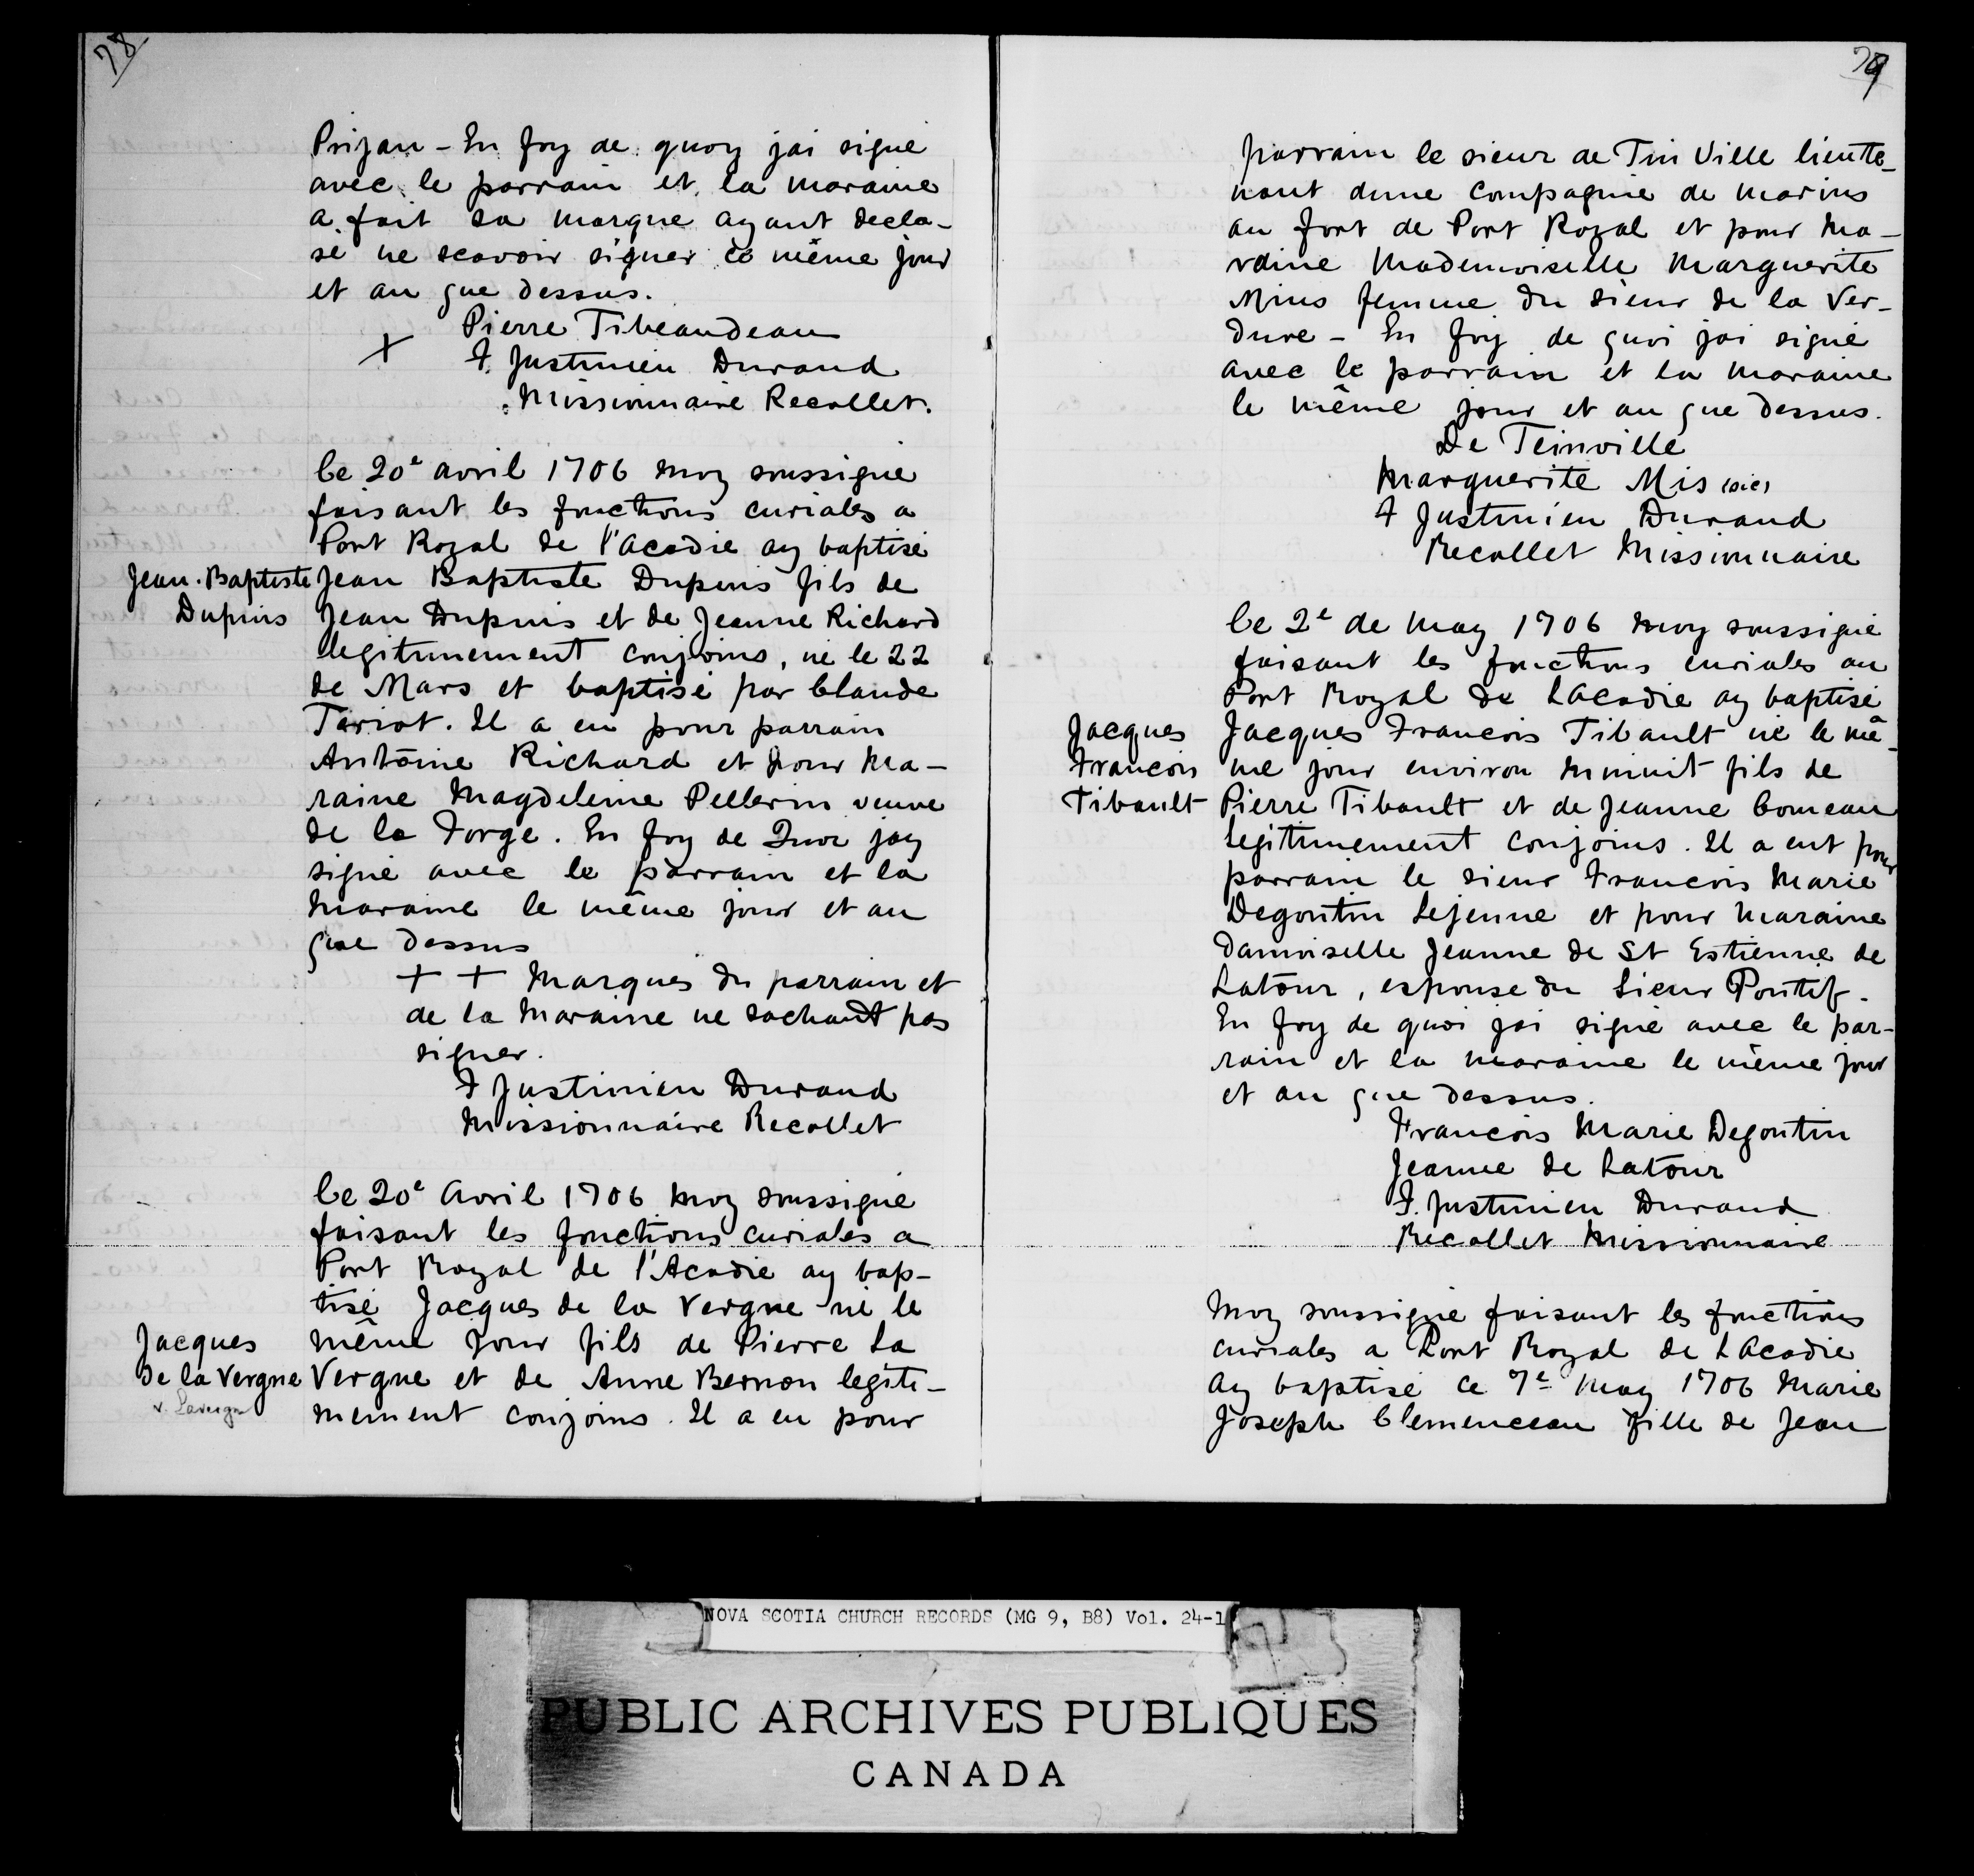 78
Prijan - En foy de quoy jai signé
avec le parrain et la maraine
a fait sa marque ayant decla-
sé ne scavoir signer ce même jour
et an que dessus.
Pierre Tibeaudeau
+ F. Justinien Durand
Missionnaire Recollet.
le 20e avril 1706 moy soussigné
faisant les fonctions curiales a
Port Royal de l'Acadie ay baptisé
Jean-Baptiste
Dupuis
Jean Baptiste Dupuis fils de
Jean Dupuis et de Jeanne Richard
legitimement conjoins, né le 22
de Mars et baptisé par Claude
Tériot. Il a eu pour parrain
Antoine Richard et pour Ma-
raine Magdeleine Pellerin veuve
de la Forge. En foy de Quoi jay
signé avec le parrain et la
Maraine le même jour et an
que dessus
+ + Marques du parrain et
de la Maraine ne sachant pas
signer.
F Justinien Durand
Missionnaire Recollet
le 20e Avril 1706 moy soussigné
faisant les fonctions curiales a
Port Royal de l'Acadie ay bap-
tisé Jacques de la Vergne né le
Jacques
De la Vergne
v. Lavergne
même jour fils de Pierre La
Vergne et de Anne Bernon legiti-
mement conjoins. Il a eu pour
79
parrain le sieur de Tin Ville lieute-
nant dune compagnie de marins
au fort de Port Royal et pour Ma-
raine Mademoiselle Marguerite
Mius femme du sieur de la Ver-
dure - En foy de quoi jai signé
avec le parrain et la maraine
le même jour et an que dessus.
De Teinville
Marguerite Mis (sic)
F Justinien Durand
Recollet Missionnaire
le 2e de May 1706 moy soussigné
faisant les fonctions curiales au
Port Royal de LAcadie ay baptisé
Jacques
Francois
Tibault
Jacques Francois Tibault né le mê-
me jour environ minuit fils de
Pierre Tibault et de Jeanne Comeau
legitimement conjoins. Il a eut pour
parrain le sieur Francois Marie
Degoutin Lejeune et pour Maraine
Damoiselle Jeanne de St Estienne de
Latour, espouse du Sieur Pontif.
En foy de quoi jai signé avec le par-
rain et la maraine le même jour
et an que dessus.
Francois Marie Degoutin
Jeanne de Latour
F. Justinien Durand
Recollet Missionnaire
Moy soussigné faisant les fonctions
curiales a Port Royal de LAcadie
ay baptisé ce 7e May 1706 Marie
Joseph Clemenceau fille de Jean
NOVA SCOTIA CHURCH RECORDS (MG 9, B8) Vol. 24-1
PUBLIC ARCHIVES PUBLIQUES
CANADA